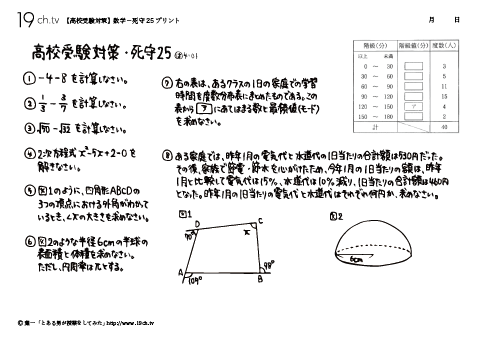 19 ch.tv 【高校受験対策】数学-死守25プリント
月 日
高校受験対策・死守25
① -4-8を計算しなさい。
② 1/3 - 3/7を計算しなさい。
③ √50-√32を計算しなさい。
④ 2次方程式x²-5x+2=0を
解きなさい。
⑤ 図1のように、四角形ABCDの
3つの頂点における外角がわかっ
ているとき、∠xの大きさを求めなさい。
⑥ 図2のような半径6cmの半球の
表面積と体積を求めなさい。
ただし、円周率はπとする。
⑦ 右の表は、あるクラスの1日の家庭での学習
時間を度数分布表にまとめたものである。この
表から ア にあてはまる数と最頻値(モード)
を求めなさい。
階級(分) 階級値(分) 度数(人)
以上 未満
0 ～ 30 3
30 ～ 60 5
60 ～ 90 11
90 ～ 120 15
120 ～ 150 ア 4
150 ～ 180 2
計 40
⑧ ある家庭では、昨年1月の電気代と水道代の1日当たりの合計額は530円だった。
その後、家族で節電・節水を心がけたため、今年1月の1日当たりの額は、昨年
1月と比較して電気代は15%、水道代は10%減り、1日当たりの合計額は460円
となった。昨年1月の1日当たりの電気代と水道代はそれぞれ何円か、求めなさい。
図1
D
C
70°
x
A
B
109°
98°
図2
6cm
葉一「とある男が授業をしてみた」http://www.19ch.tv